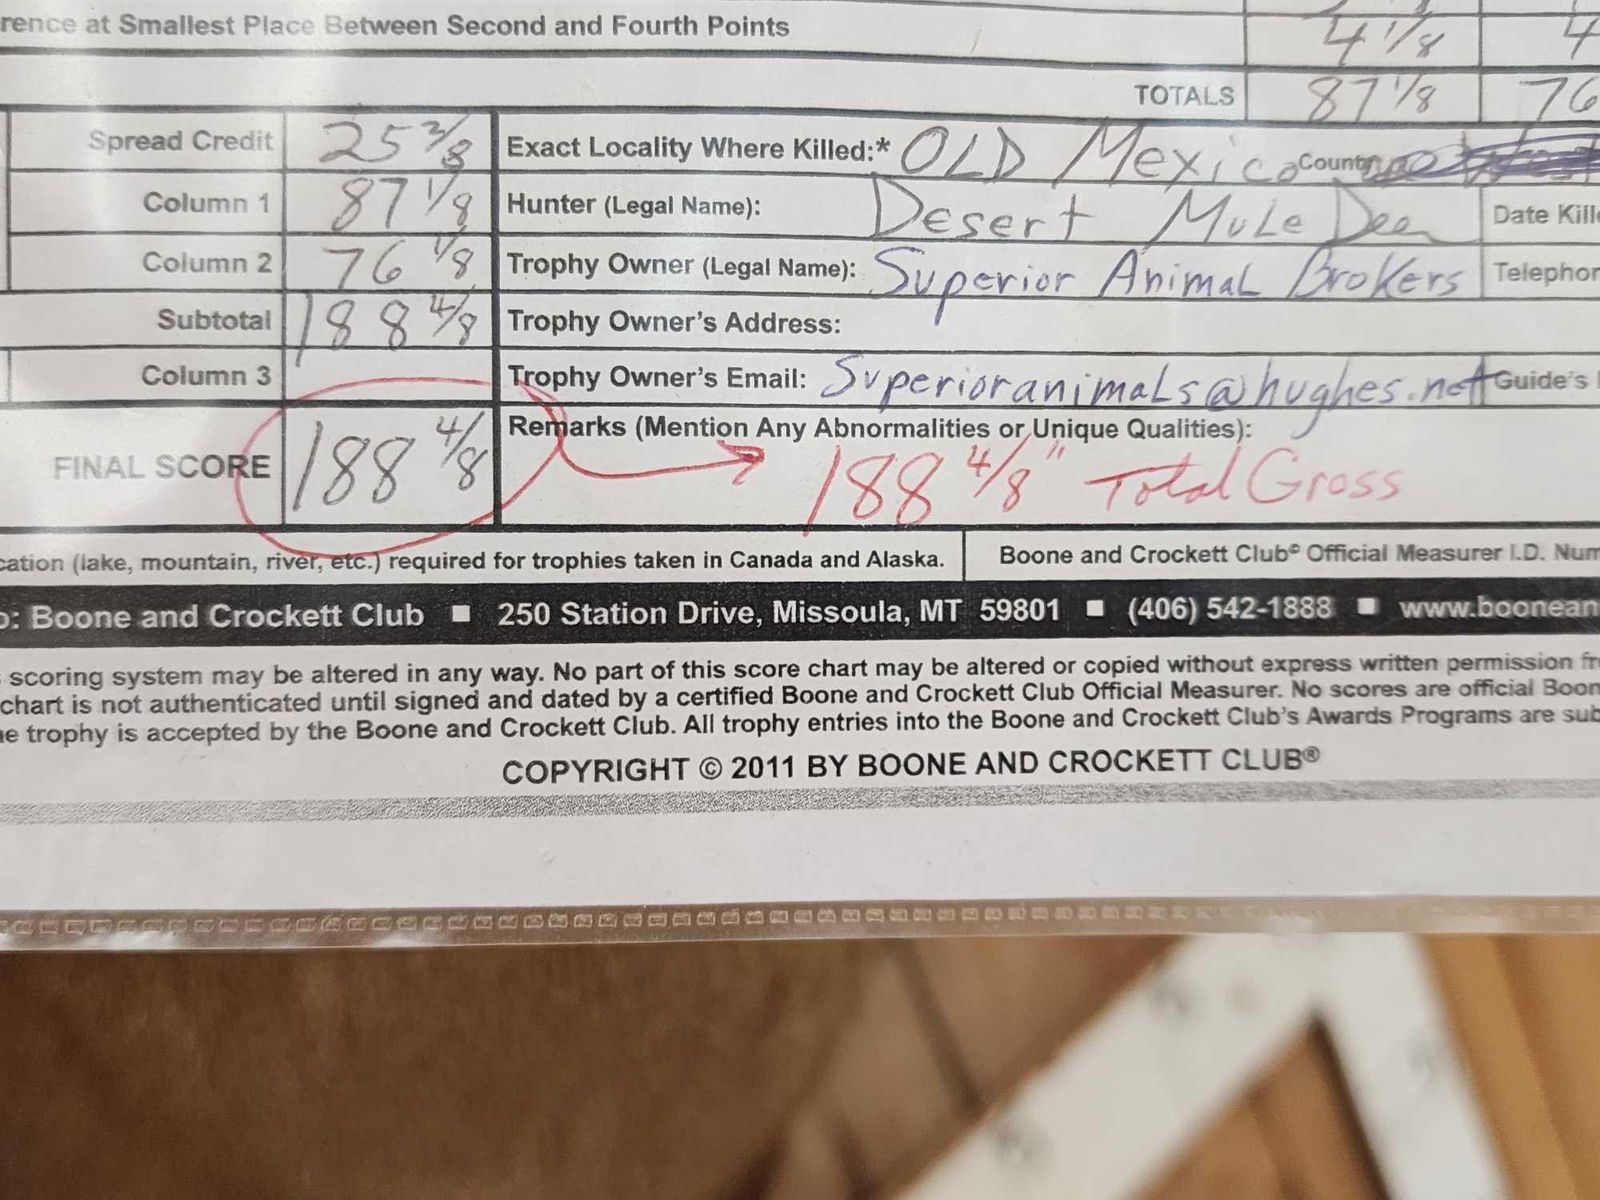 rence at Smallest Place Between Second and Fourth Points 4 1/8 4
TOTALS 87 1/8 76
Spread Credit 25 2/8 Exact Locality Where Killed:* OLD Mexico County
Column 1 87 1/8 Hunter (Legal Name): Desert Mule Deer Date Kille
Column 2 76 1/8 Trophy Owner (Legal Name): Superior Animal Brokers Telephon
Subtotal 188 4/8 Trophy Owner's Address:
Column 3 Trophy Owner's Email: Superioranimals@hughes.net Guide's
FINAL SCORE 188 4/8 Remarks (Mention Any Abnormalities or Unique Qualities):
188 4/8" Total Gross
cation (lake, mountain, river, etc.) required for trophies taken in Canada and Alaska. Boone and Crockett Club® Official Measurer I.D. Num
o: Boone and Crockett Club ■ 250 Station Drive, Missoula, MT 59801 ■ (406) 542-1888 ■ www.boonean
scoring system may be altered in any way. No part of this score chart may be altered or copied without express written permission fr
chart is not authenticated until signed and dated by a certified Boone and Crockett Club Official Measurer. No scores are official Boon
e trophy is accepted by the Boone and Crockett Club. All trophy entries into the Boone and Crockett Club's Awards Programs are sub
COPYRIGHT © 2011 BY BOONE AND CROCKETT CLUB®